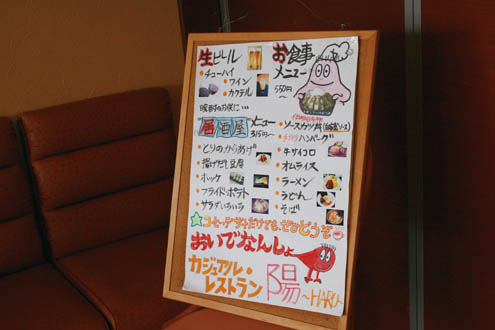 生ビール
・チューハイ
・ワイン
・カクテル
お食事
メニュー
550円～
居酒屋
メニュー
315円～
・とりのからあげ
・揚げだし豆腐
・ホッケ
・フライドポテト
・サラダいろいろ
・ソースカツ丼
・ハンバーグ
・牛サイコロ
・オムライス
・ラーメン
・うどん
・そば
コーヒー・デザートだけでも、ぜひどうぞ
おいでなんしょ
カジュアル・
レストラン
陽
～HARU～